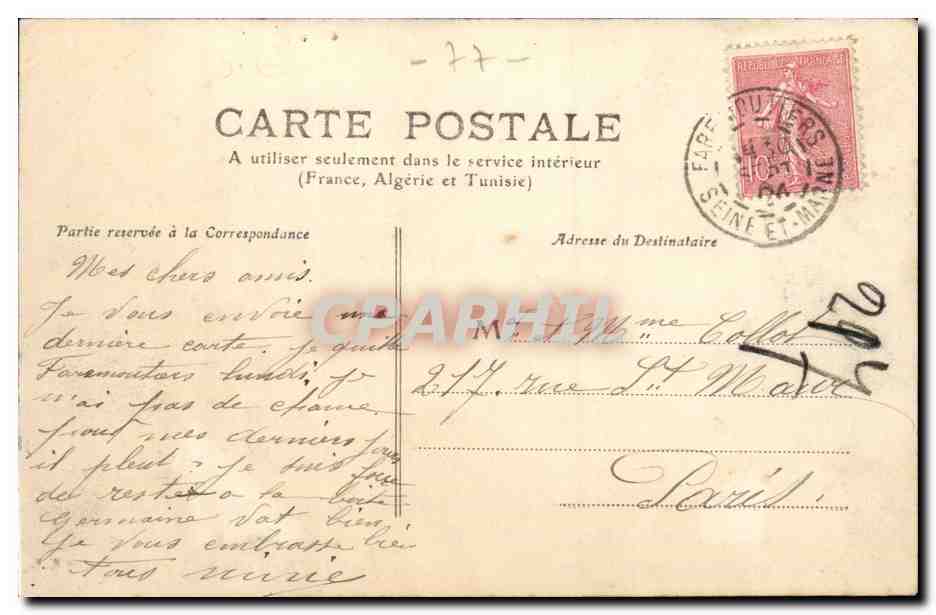 - 77 -
CARTE POSTALE
A utiliser seulement dans le service intérieur
(France, Algérie et Tunisie)
REPUBLIQUE FRANÇAISE
10
FAREMOUTIERS
SEINE-ET-MARNE
Partie reservée à la Correspondance
Adresse du Destinataire
Mes chers amis.
Je vous envoie une
dernière carte. je quitte
Faremoutiers lundi. je
n'ai pas de chance
pour mes derniers jours
il pleut. je suis
de reste a la
Germaine vat bien
Je vous embrasse bien
Tous
Mr et Mme Collot
217. rue St Maur
Paris.
CPARHIL